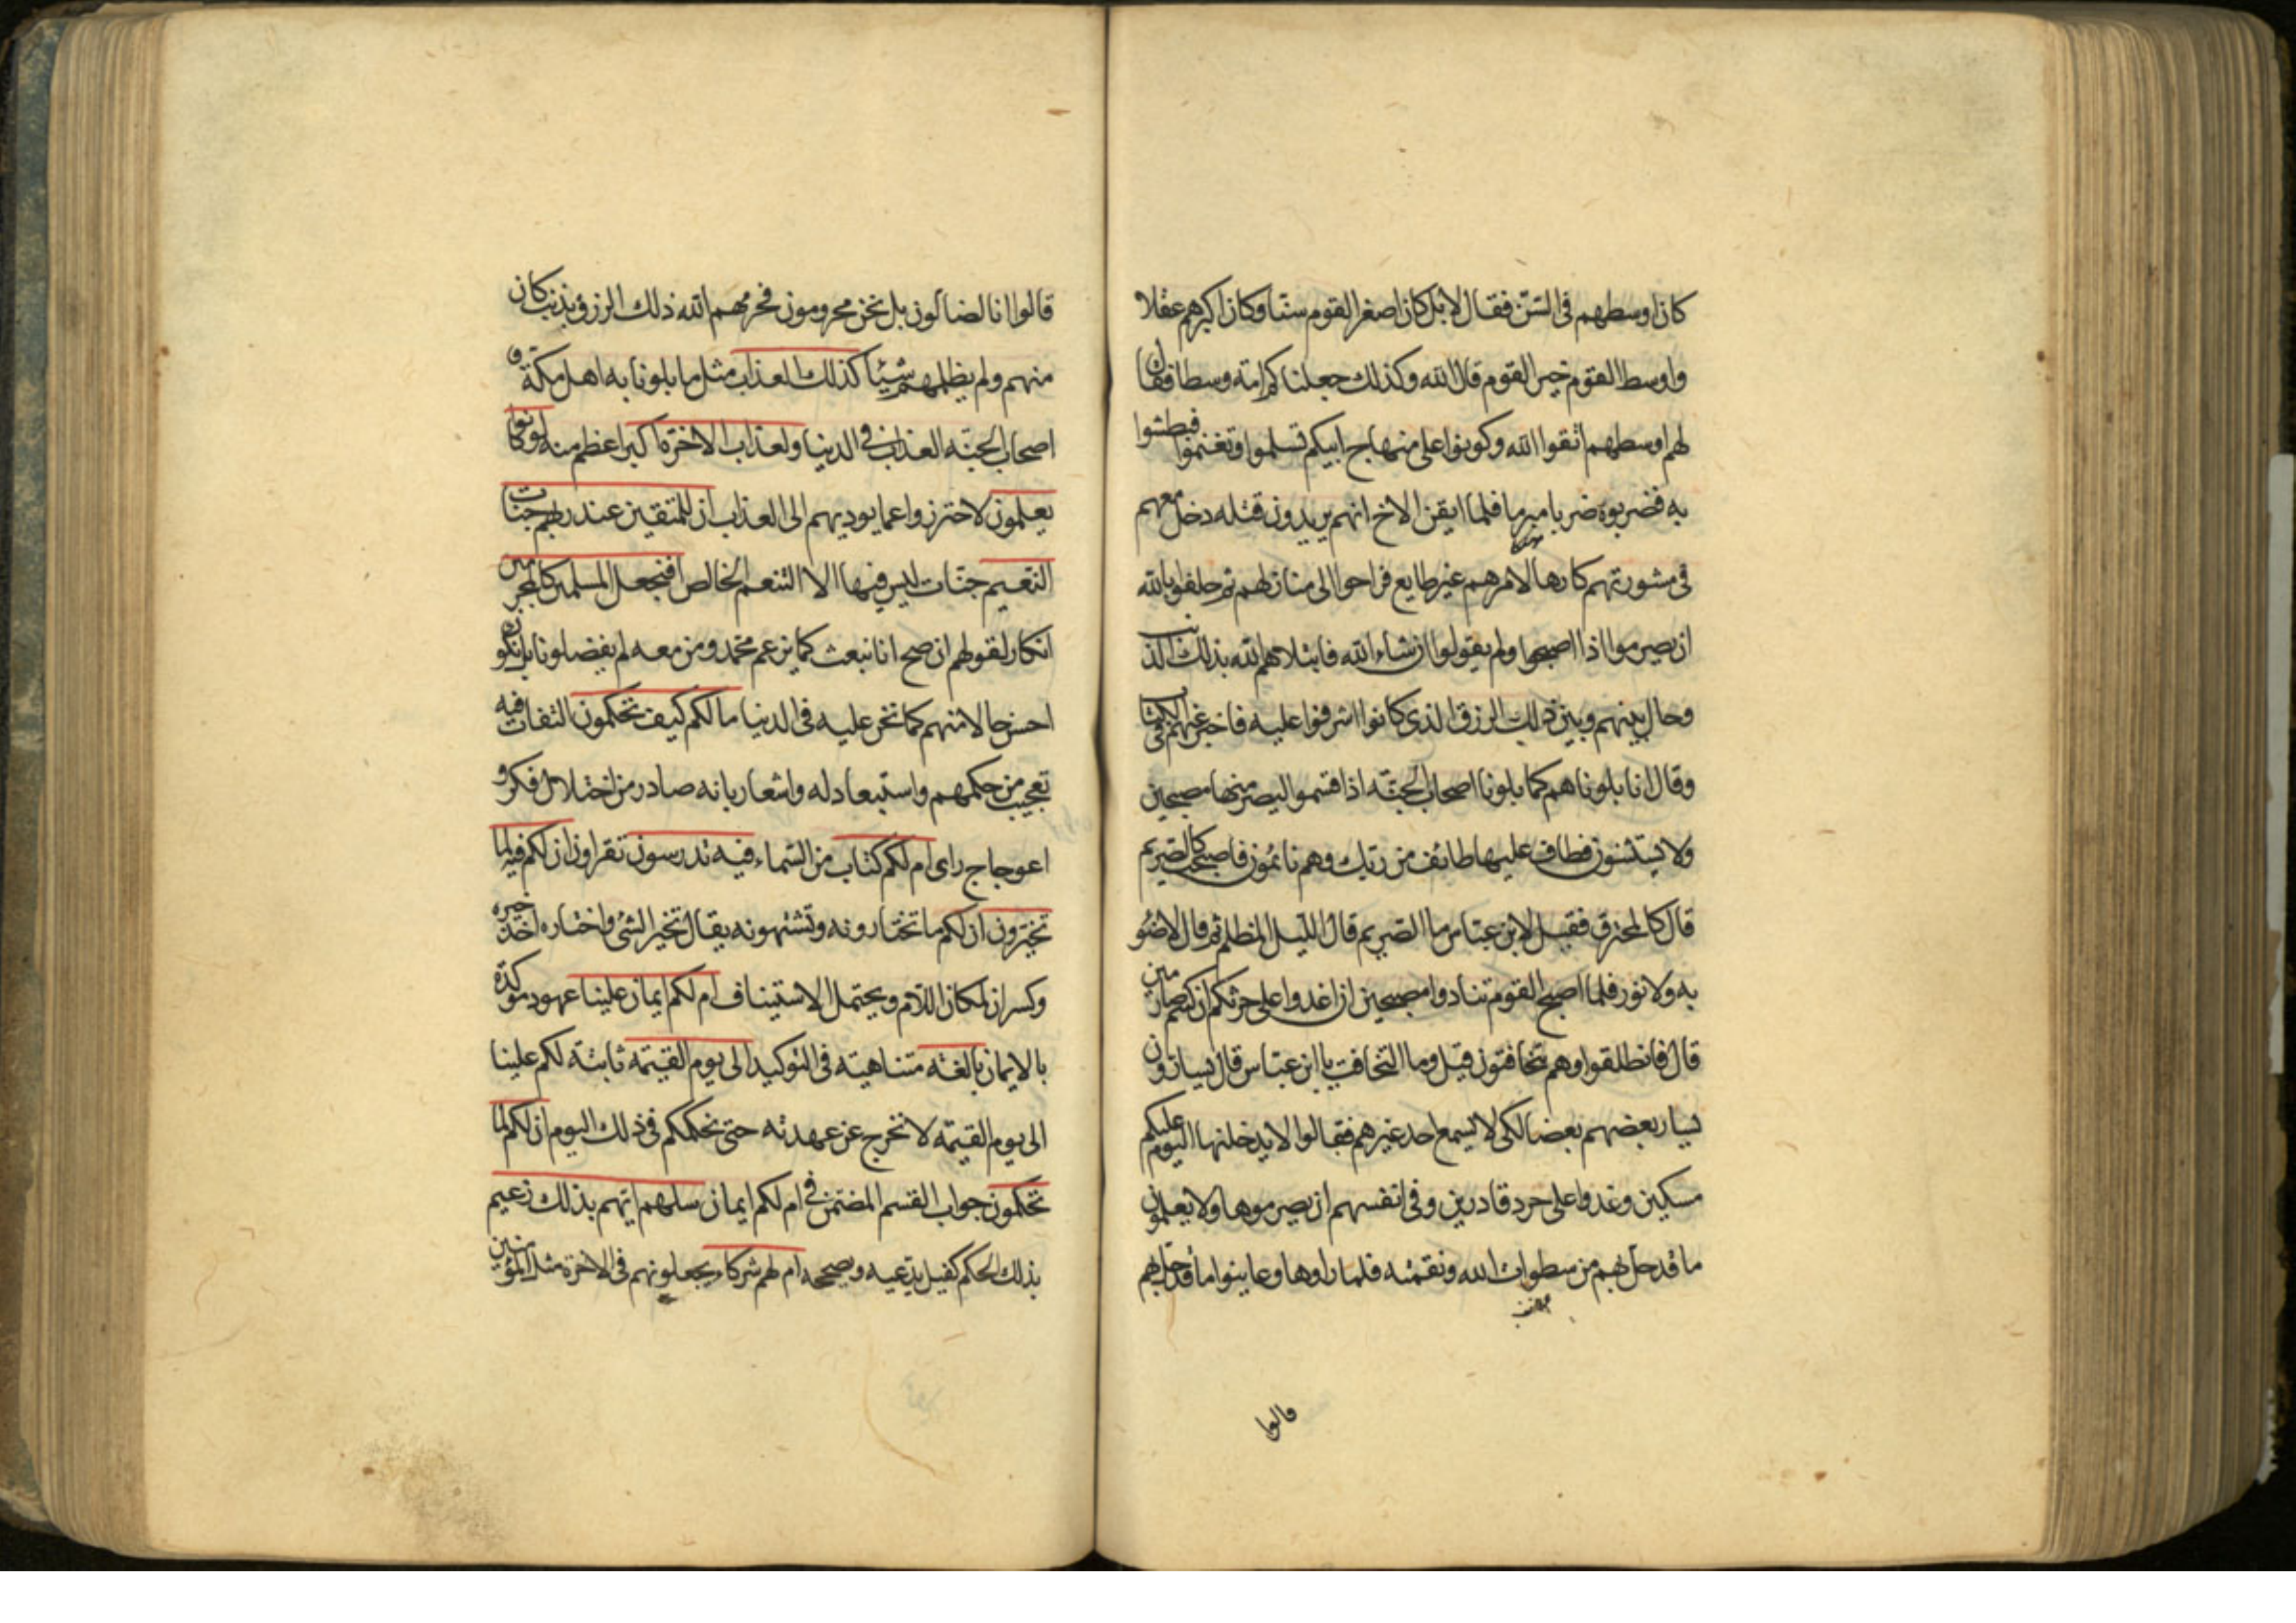 كان اوسطهم فى السّن فقال لا بل كان اصغر القوم سنّا وكان اكبرهم عقلا
واوسط القوم خير القوم قال الله وكذلك جعلناكم امّة وسطا فقال
لهم اوسطهم اتقوا الله وكونوا على منهاج ابيكم تسلموا وتغنموا فبطشوا
به فضربوه ضربا مبرما فلما ايقن الاخ انهم يريدون قتله دخل معهم
فى مشورتهم كارها لامرهم غير طايع فراحوا الى منازلهم ثم حلفوا بالله
ان يصرموا اذا اصبحوا ولم يقولوا ان شاء الله فابتلاهم الله بذلك الذنب
وحال بينهم وبين ذلك الرزق الذى كانوا اشرفوا عليه فاخبر عنهم فى الكتاب
وقال انا بلوناهم كما بلونا اصحاب الجنّة اذ اقسموا ليصرمنها مصبحين
ولا يستثنون فطاف عليها طائف من ربك وهم نائمون فاصبحت كالصريم
قال كالمحترق فقيل لابن عبّاس ما الصريم قال الليل المظلم ثم قال لا ضوء
به ولا نور فلما اصبح القوم تنادوا مصبحين ان اغدوا على حرثكم ان كنتم صارمين
قال فانطلقوا وهم يتخافتون قيل وما التخافت يا ابن عبّاس قال يسارّون
يسار بعضهم بعضا لكى لا يسمع احد غيرهم فقالوا لا يدخلنها اليوم عليكم
مسكين وغدوا على حرد قادرين وفى انفسهم ان يصرموها ولا يعلمون
ما قد حل بهم من سطوات الله ونقمته فلما راوها وعاينوا ما قد حل بهم
قالوا
قالوا انا لضالّون بل نحن محرومون فحرمهم الله ذلك الرزق بذنب كان
منهم ولم يظلمهم شيئا كذلك العذاب مثل ما بلونا به اهل مكّة و
اصحاب الجنّة العذاب فى الدنيا ولعذاب الاخرة اكبر اعظم منه لو كانوا
يعلمون لاحترزوا عما يوديهم الى العذاب ان للمتقين عند ربهم جنات
النّعيم جنّات ليس فيها الا التنعم الخالص افنجعل المسلمين كالمجرمين
انكار لقولهم ان صح انا نبعث كما يزعم محمّد ومن معه لم يفضلونا بل نكون
احسن حالا منهم كما نحن عليه فى الدنيا ما لكم كيف تحكمون التفات فيه
تعجيب من حكمهم واستبعاد له واشعار بانه صادر من اختلال فكر و
اعوجاج راى ام لكم كتاب من السّماء فيه تدرسون تقراون ان لكم فيه لما
تخيّرون ان لكم ما تختارونه وتشتهونه يقال تخير الشئ واختاره اخذ خيره
وكسر ان لمكان اللّام ويحتمل الاستيناف ام لكم ايمان علينا عهود موكّدة
بالايمان بالغة متناهية فى التوكيد الى يوم القيمة ثابتة لكم علينا
الى يوم القيمة لا نخرج عن عهدته حتى نحكمكم فى ذلك اليوم ان لكم لما
تحكمون جواب القسم المضمّن فى ام لكم ايمان سلهم ايّهم بذلك زعيم
بذلك الحكم كفيل يدّعيه ويصححه ام لهم شركاء يجعلونهم فى الاخرة مثل المؤمنين